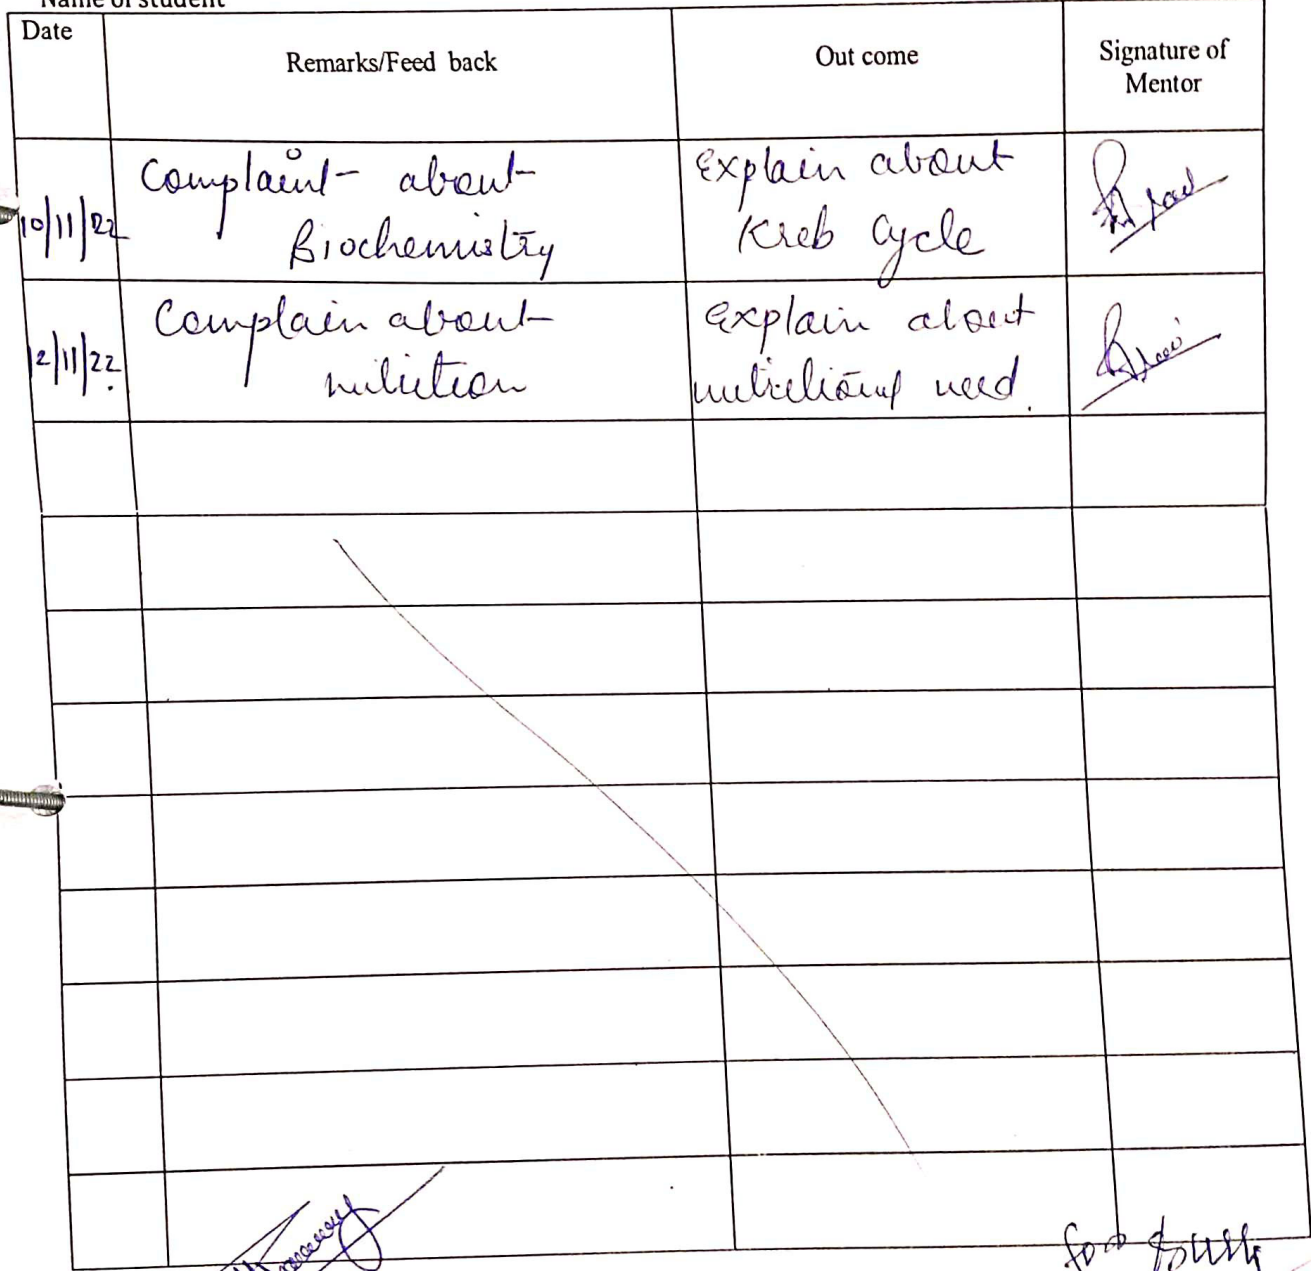 Name of student
Date
Remarks/Feed back
Out come
Signature of
Mentor
10/11/22
Complaint about
Biochemistry
Explain about
Kreb Cycle
12/11/22
Complain about
nutrition
Explain about
nutritional need.